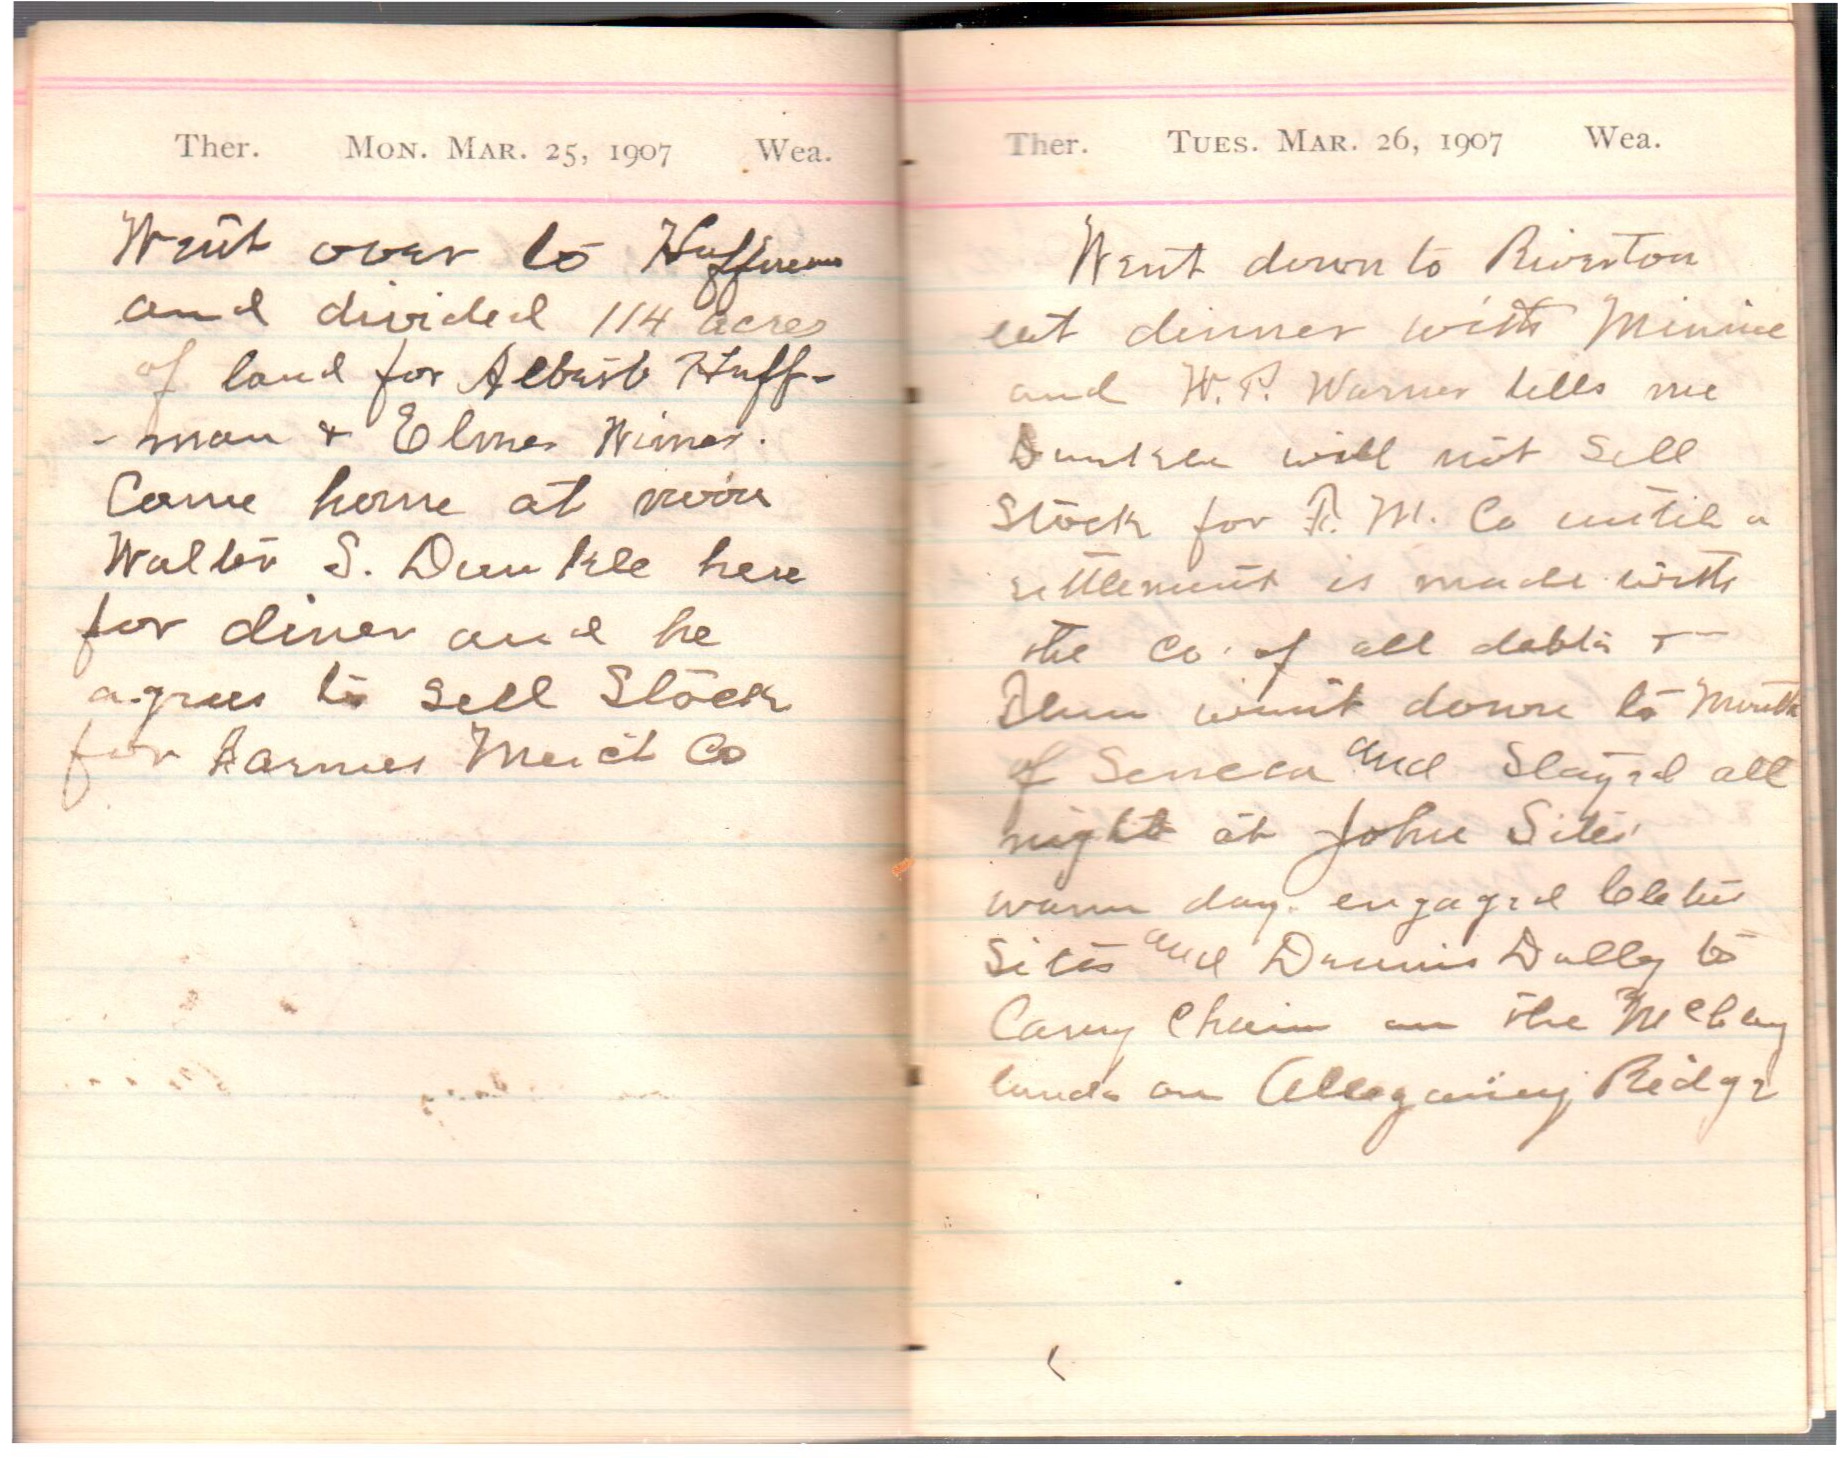 Ther. Mon. Mar. 25, 1907 Wea.
Went over to Huffmans
and divided 114 acres
of land for Albert Huff-
-man & Elmer Wimer.
Came home at noon
Walter S. Dunkle here
for diner and he
agrees to sell Stock
for Farmers Merct Co
Ther. Tues. Mar. 26, 1907 Wea.
Went down to Riverton
eat dinner with Minnie
and W. P. Warner tells me
Dunkle will not Sell
Stock for F. M. Co until a
settlement is made with
the Co. of all debts
Then went down to Mouth
of Seneca and Stayed all
night at John Sites
warm day. engaged Cletus
Sites and Dennis Dolly to
Carry Chain on the McClung
lands on Allegany Ridge